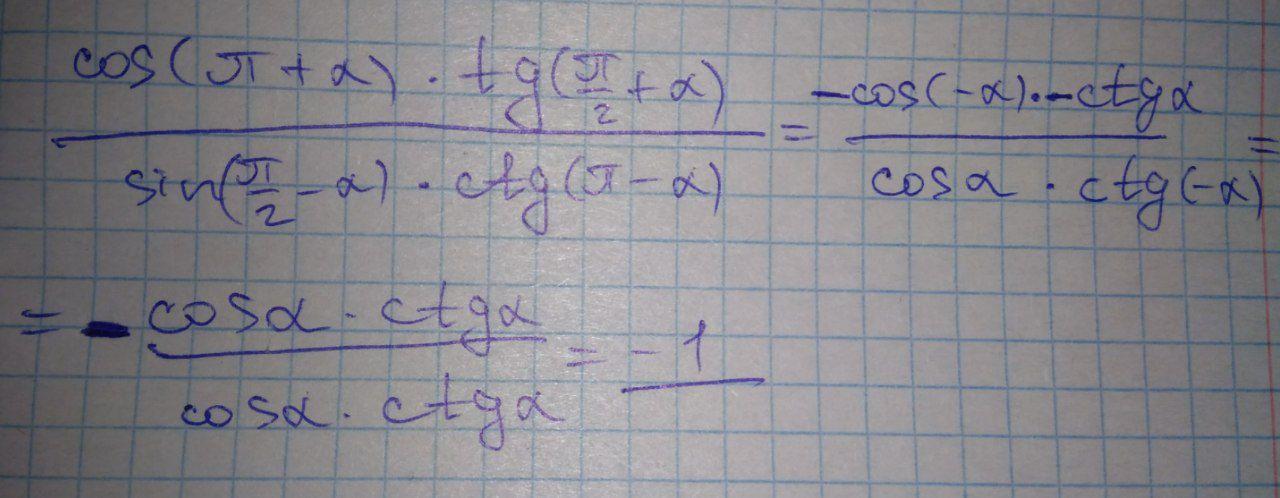 cos(π+α) · tg(π/2+α) / sin(π/2-α) · ctg(π-α) = -cos(-α)·-ctgα / cosα · ctg(-α) =
= - cosα · ctgα / cosα · ctgα = -1